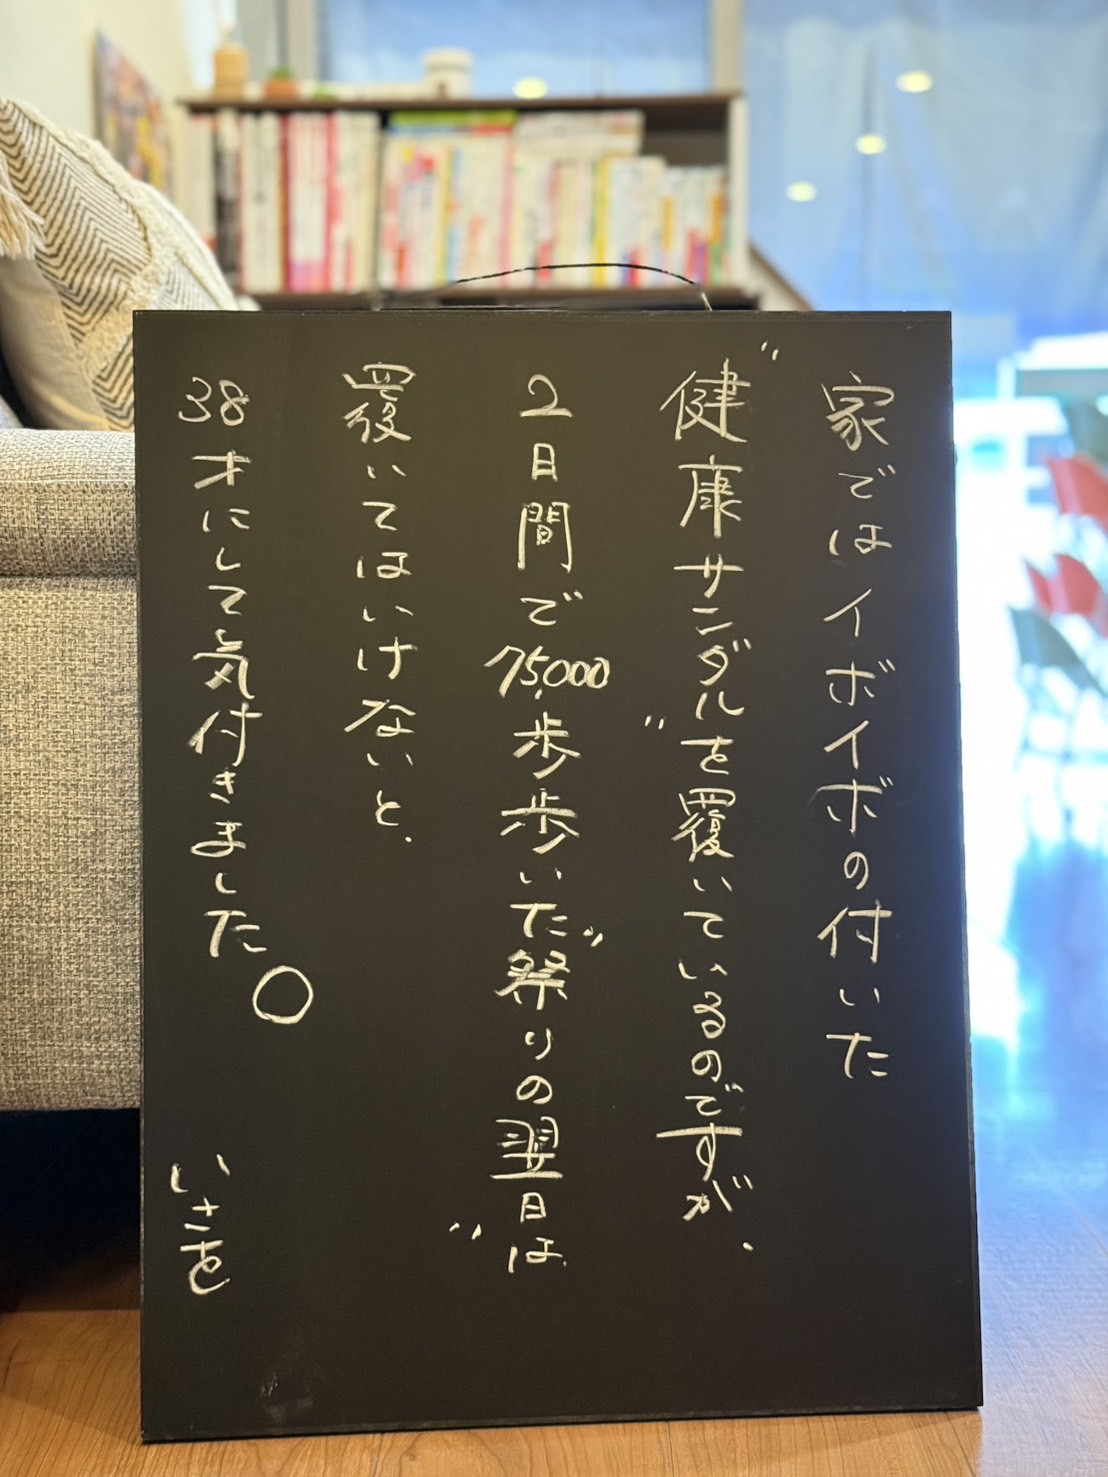 家ではイボイボの付いた
〝健康サンダル〟を覆いているのですが、
2日間で75,000歩歩いた〝祭りの翌日は〟
覆いてはいけないと、
38才にして気付きました。
いさを